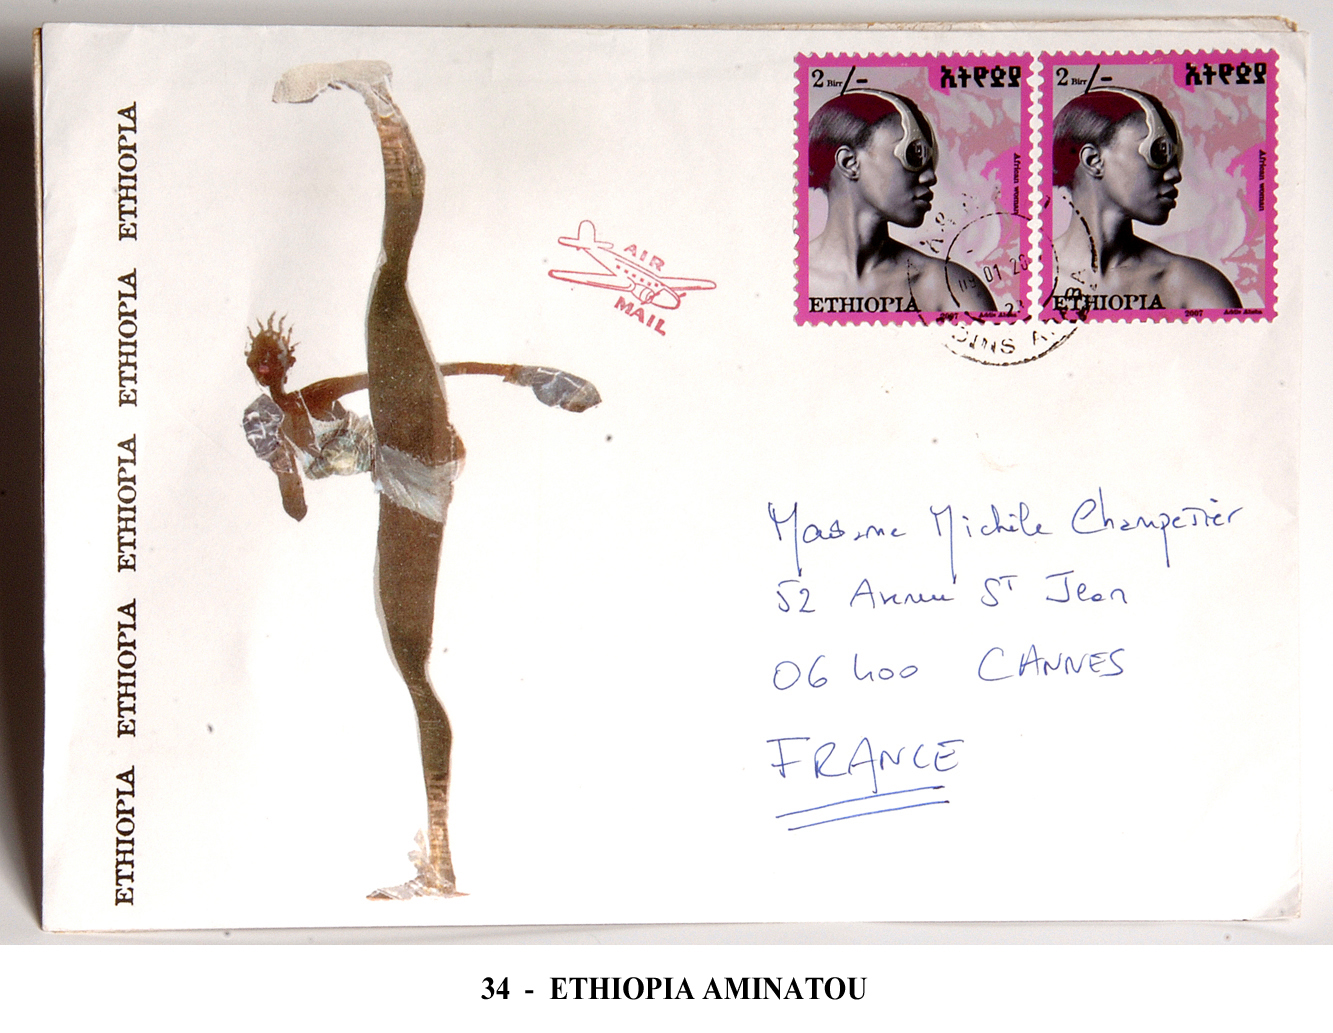 ETHIOPIA ETHIOPIA ETHIOPIA ETHIOPIA ETHIOPIA
AIR
MAIL
2 Birr /-
ኢትዮጵያ
African woman
ETHIOPIA
2007 Addis Ababa
2 Birr /-
ኢትዮጵያ
African woman
ETHIOPIA
2007 Addis Ababa
09 01 20
Madame Michèle Champetier
52 Avenue ST Jean
06400 CANNES
FRANCE
34 - ETHIOPIA AMINATOU